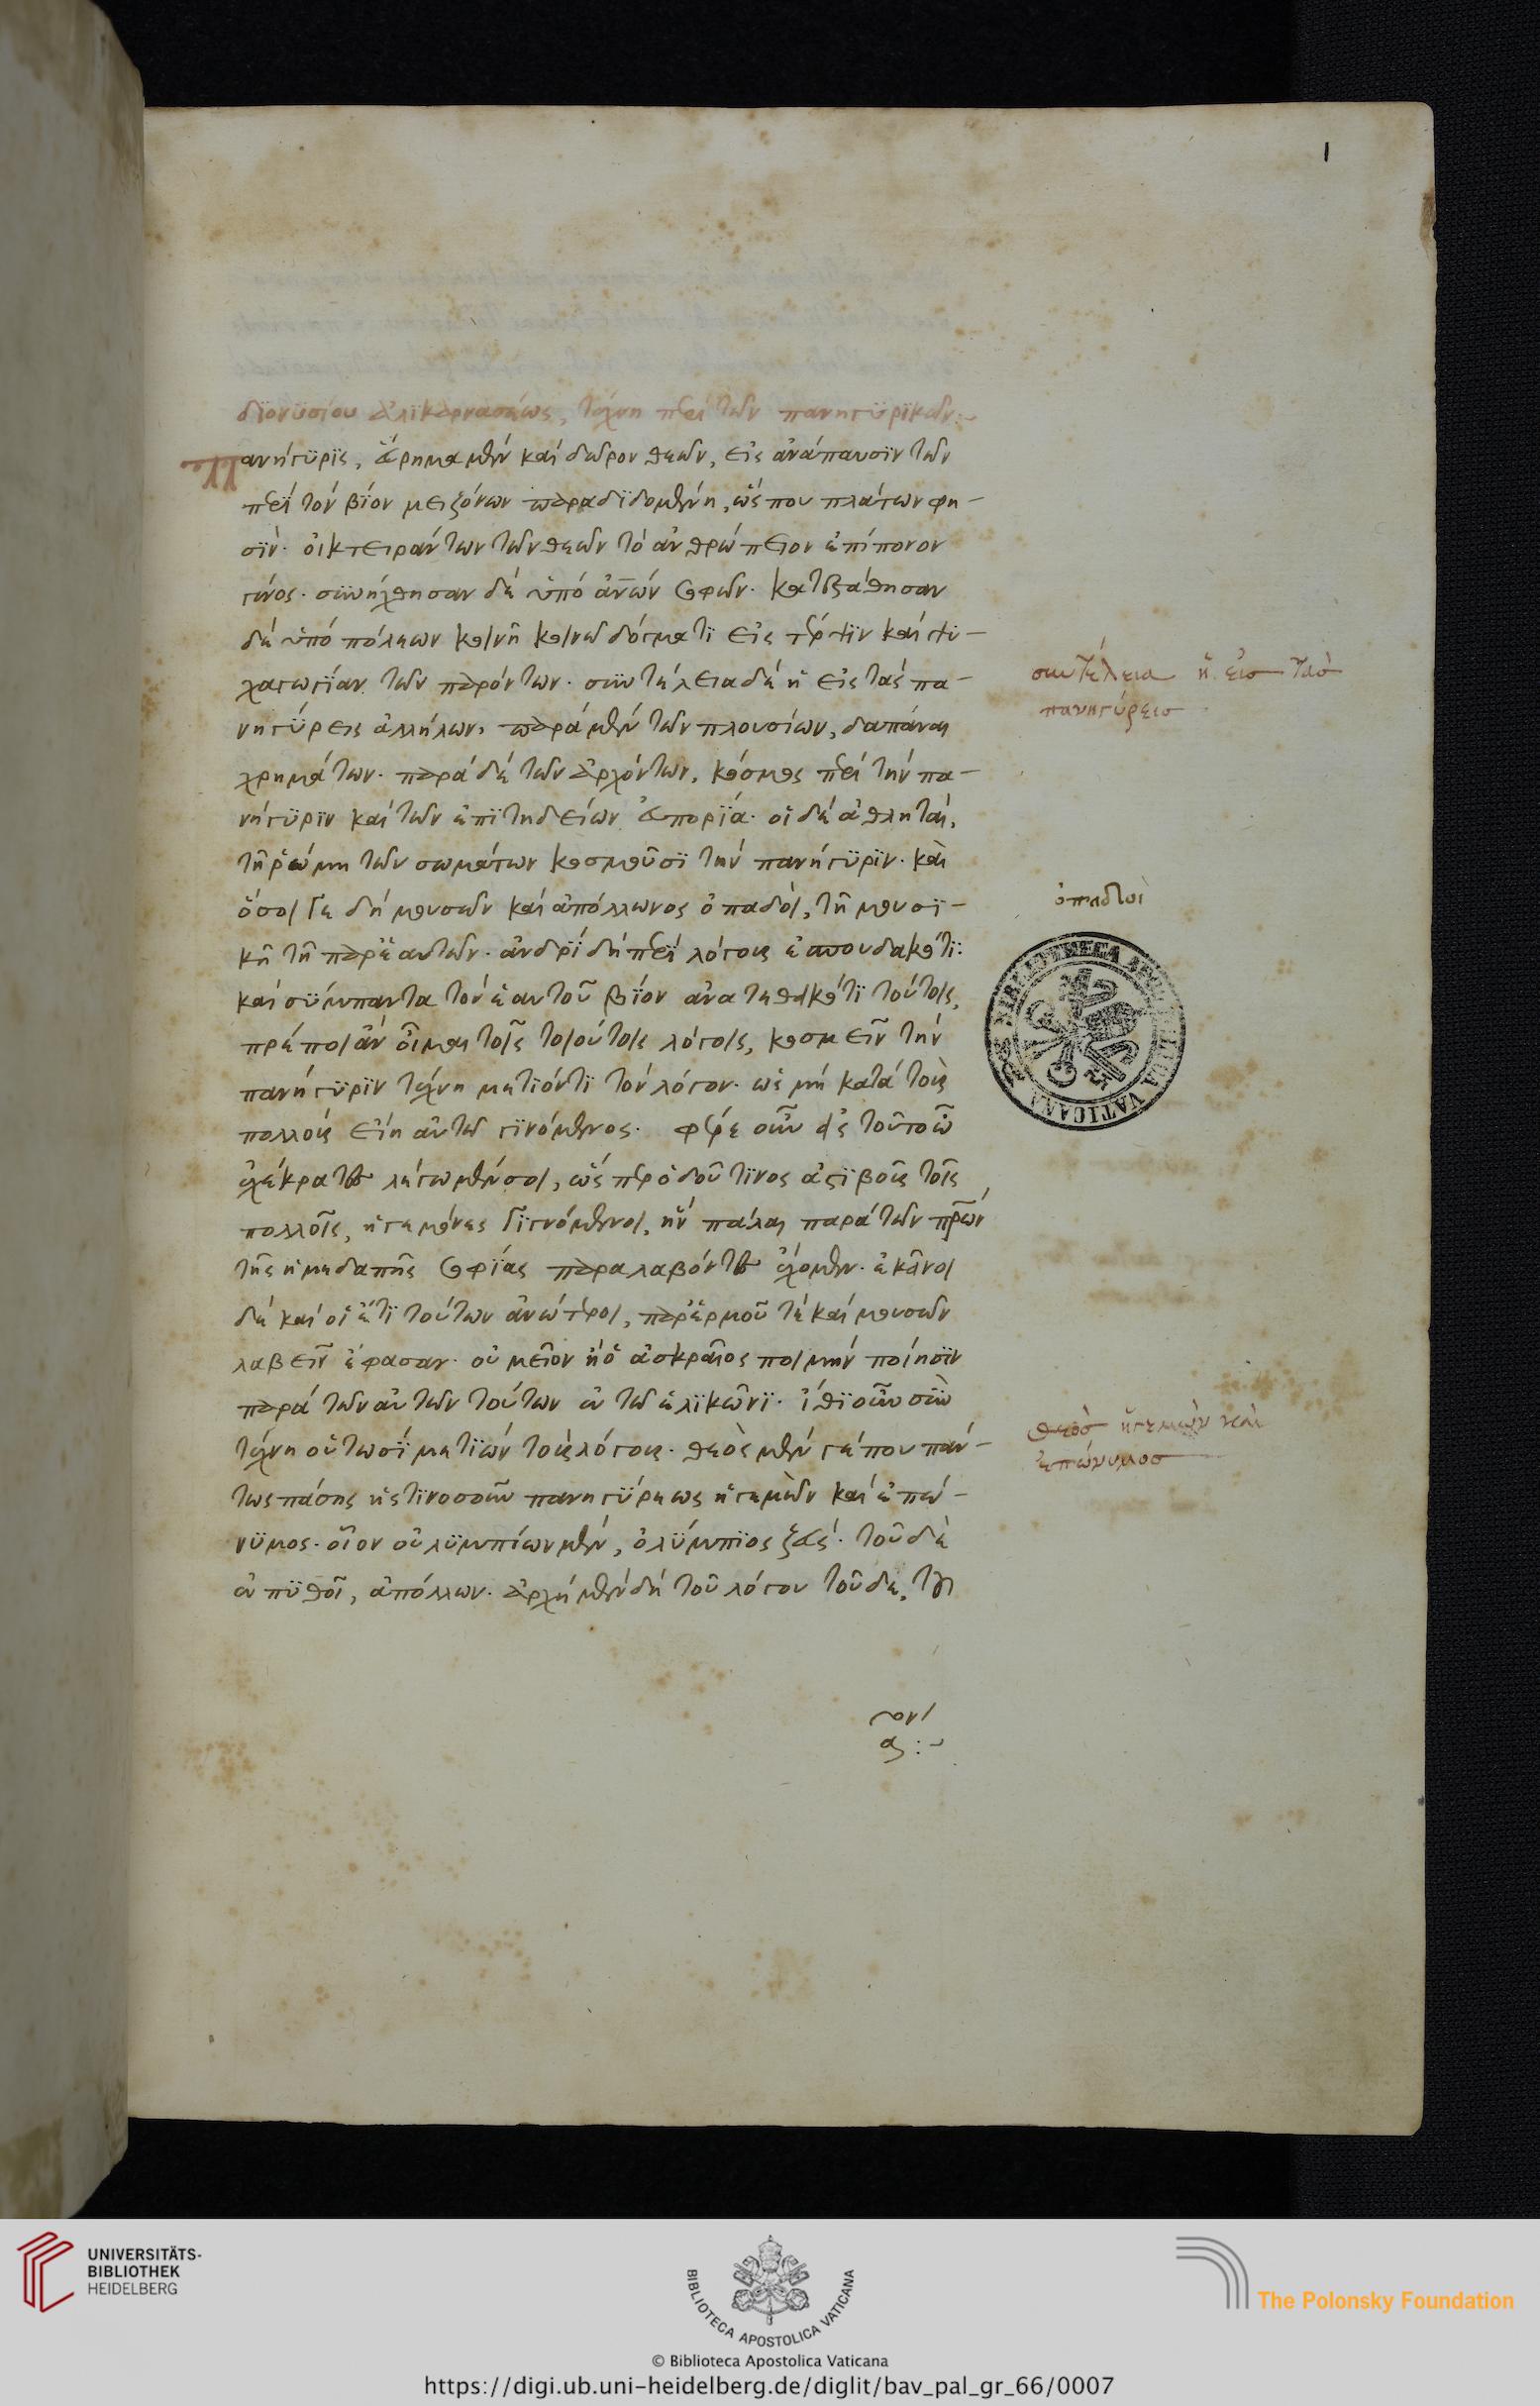 1
διονυσίου ἁλικαρνασέως, τέχνη περὶ τῶν πανηγυρικῶν:~
Πανήγυρις, εὕρημα μὲν καὶ δῶρον θεῶν, εἰς ἀνάπαυσιν τῶν
περὶ τὸν βίον μειζόνων παραδιδομένη, ὥς που πλάτων φη-
σὶν· οἰκτειράντων τῶν θεῶν τὸ ἀνθρώπειον ἐπίπονον
γένος. συνήχθησαν δὲ ὑπὸ ἀνῶν σοφῶν. κατεστάθησαν
δὲ ὑπὸ πόλεων κοινῇ κοινῷ δόγματι εἰς τέρψιν καὶ ψυ-
χαγωγίαν τῶν παρόντων. συντέλεια δὲ ἡ εἰς τὰς πα-
νηγύρεις ἀλλήλων. παρὰ μὲν τῶν πλουσίων, δαπάναι
χρημάτων. παρὰ δὲ τῶν ἀρχόντων, κόσμος περὶ τὴν πα-
νήγυριν καὶ τῶν ἐπιτηδείων εὐπορία. οἱ δὲ ἀθληταὶ,
τῇ ῥώμῃ τῶν σωμάτων κοσμοῦσι τὴν πανήγυριν. καὶ
ὅσοι γε δὴ μουσῶν καὶ ἀπόλλωνος ὀπαδοὶ, τῇ μουσι-
κῇ τῇ παρ' ἑαυτῶν. ἀνδρὶ δὴ περὶ λόγους ἐσπουδακότι:
καὶ σύμπαντα τὸν ἑαυτοῦ βίον ἀνατεθεικότι τούτοις,
πρέποι ἂν οἶμαι τοῖς τοιούτοις λόγοις, κοσμεῖν τὴν
πανήγυριν τέχνῃ μετιόντι τὸν λόγον. ὡς μὴ κατὰ τοὺς
πολλοὺς εἴη αὐτῷ γινόμενος. φέρε οὖν εἰς τοῦτο ὦ
ἐχέκρατες λέγωμέν σοι, ὥσπερ ὁδοῦ τινος ἀστιβοῦς τοῖς
πολλοῖς, ἡγεμόνες γιγνόμενοι, ἣν πάλαι παρὰ τῶν πρων
τῆς ἡμεδαπῆς σοφίας παραλαβόντες ἔχομεν. ἐκεῖνοι
δὲ καὶ οἱ ἔτι τούτων ἀνώτεροι, παρ' ἑρμοῦ τε καὶ μουσῶν
λαβεῖν ἔφασαν. οὐ μεῖον ἢ ὁ ἀσκραῖος ποιμὴν ποίησιν
παρὰ τῶν αὐτῶν τούτων ἐν τῷ ἑλικῶνι. ἴθι οὖν σὺν
τέχνῃ οὑτωσὶ μετιὼν τοὺς λόγους. θεὸς μέν γέ που πάν-
τως πάσης ἡστινοσοῦν πανηγύρεως ἡγεμὼν καὶ ἐπώ-
νυμος. οἷον ὀυλυμπίων μὲν, ὀλύμπιος ζεύς. τοῦ δὲ
ἐν πυθοῖ, ἀπόλλων. ἀρχὴ μὲν δὴ τοῦ λόγου τοῦδε, του
συντέλεια ἡ εἰσ τὰσ
πανηγύρεισ
ὀπαδοὶ
θεὸσ ἡγεμὼν καὶ
ἐπώνυμοσ
BIBLIOTHECA APOSTOLICA VATICANA
UNIVERSITÄTS-
BIBLIOTHEK
HEIDELBERG
BIBLIOTECA APOSTOLICA VATICANA
The Polonsky Foundation
© Biblioteca Apostolica Vaticana
https://digi.ub.uni-heidelberg.de/diglit/bav_pal_gr_66/0007